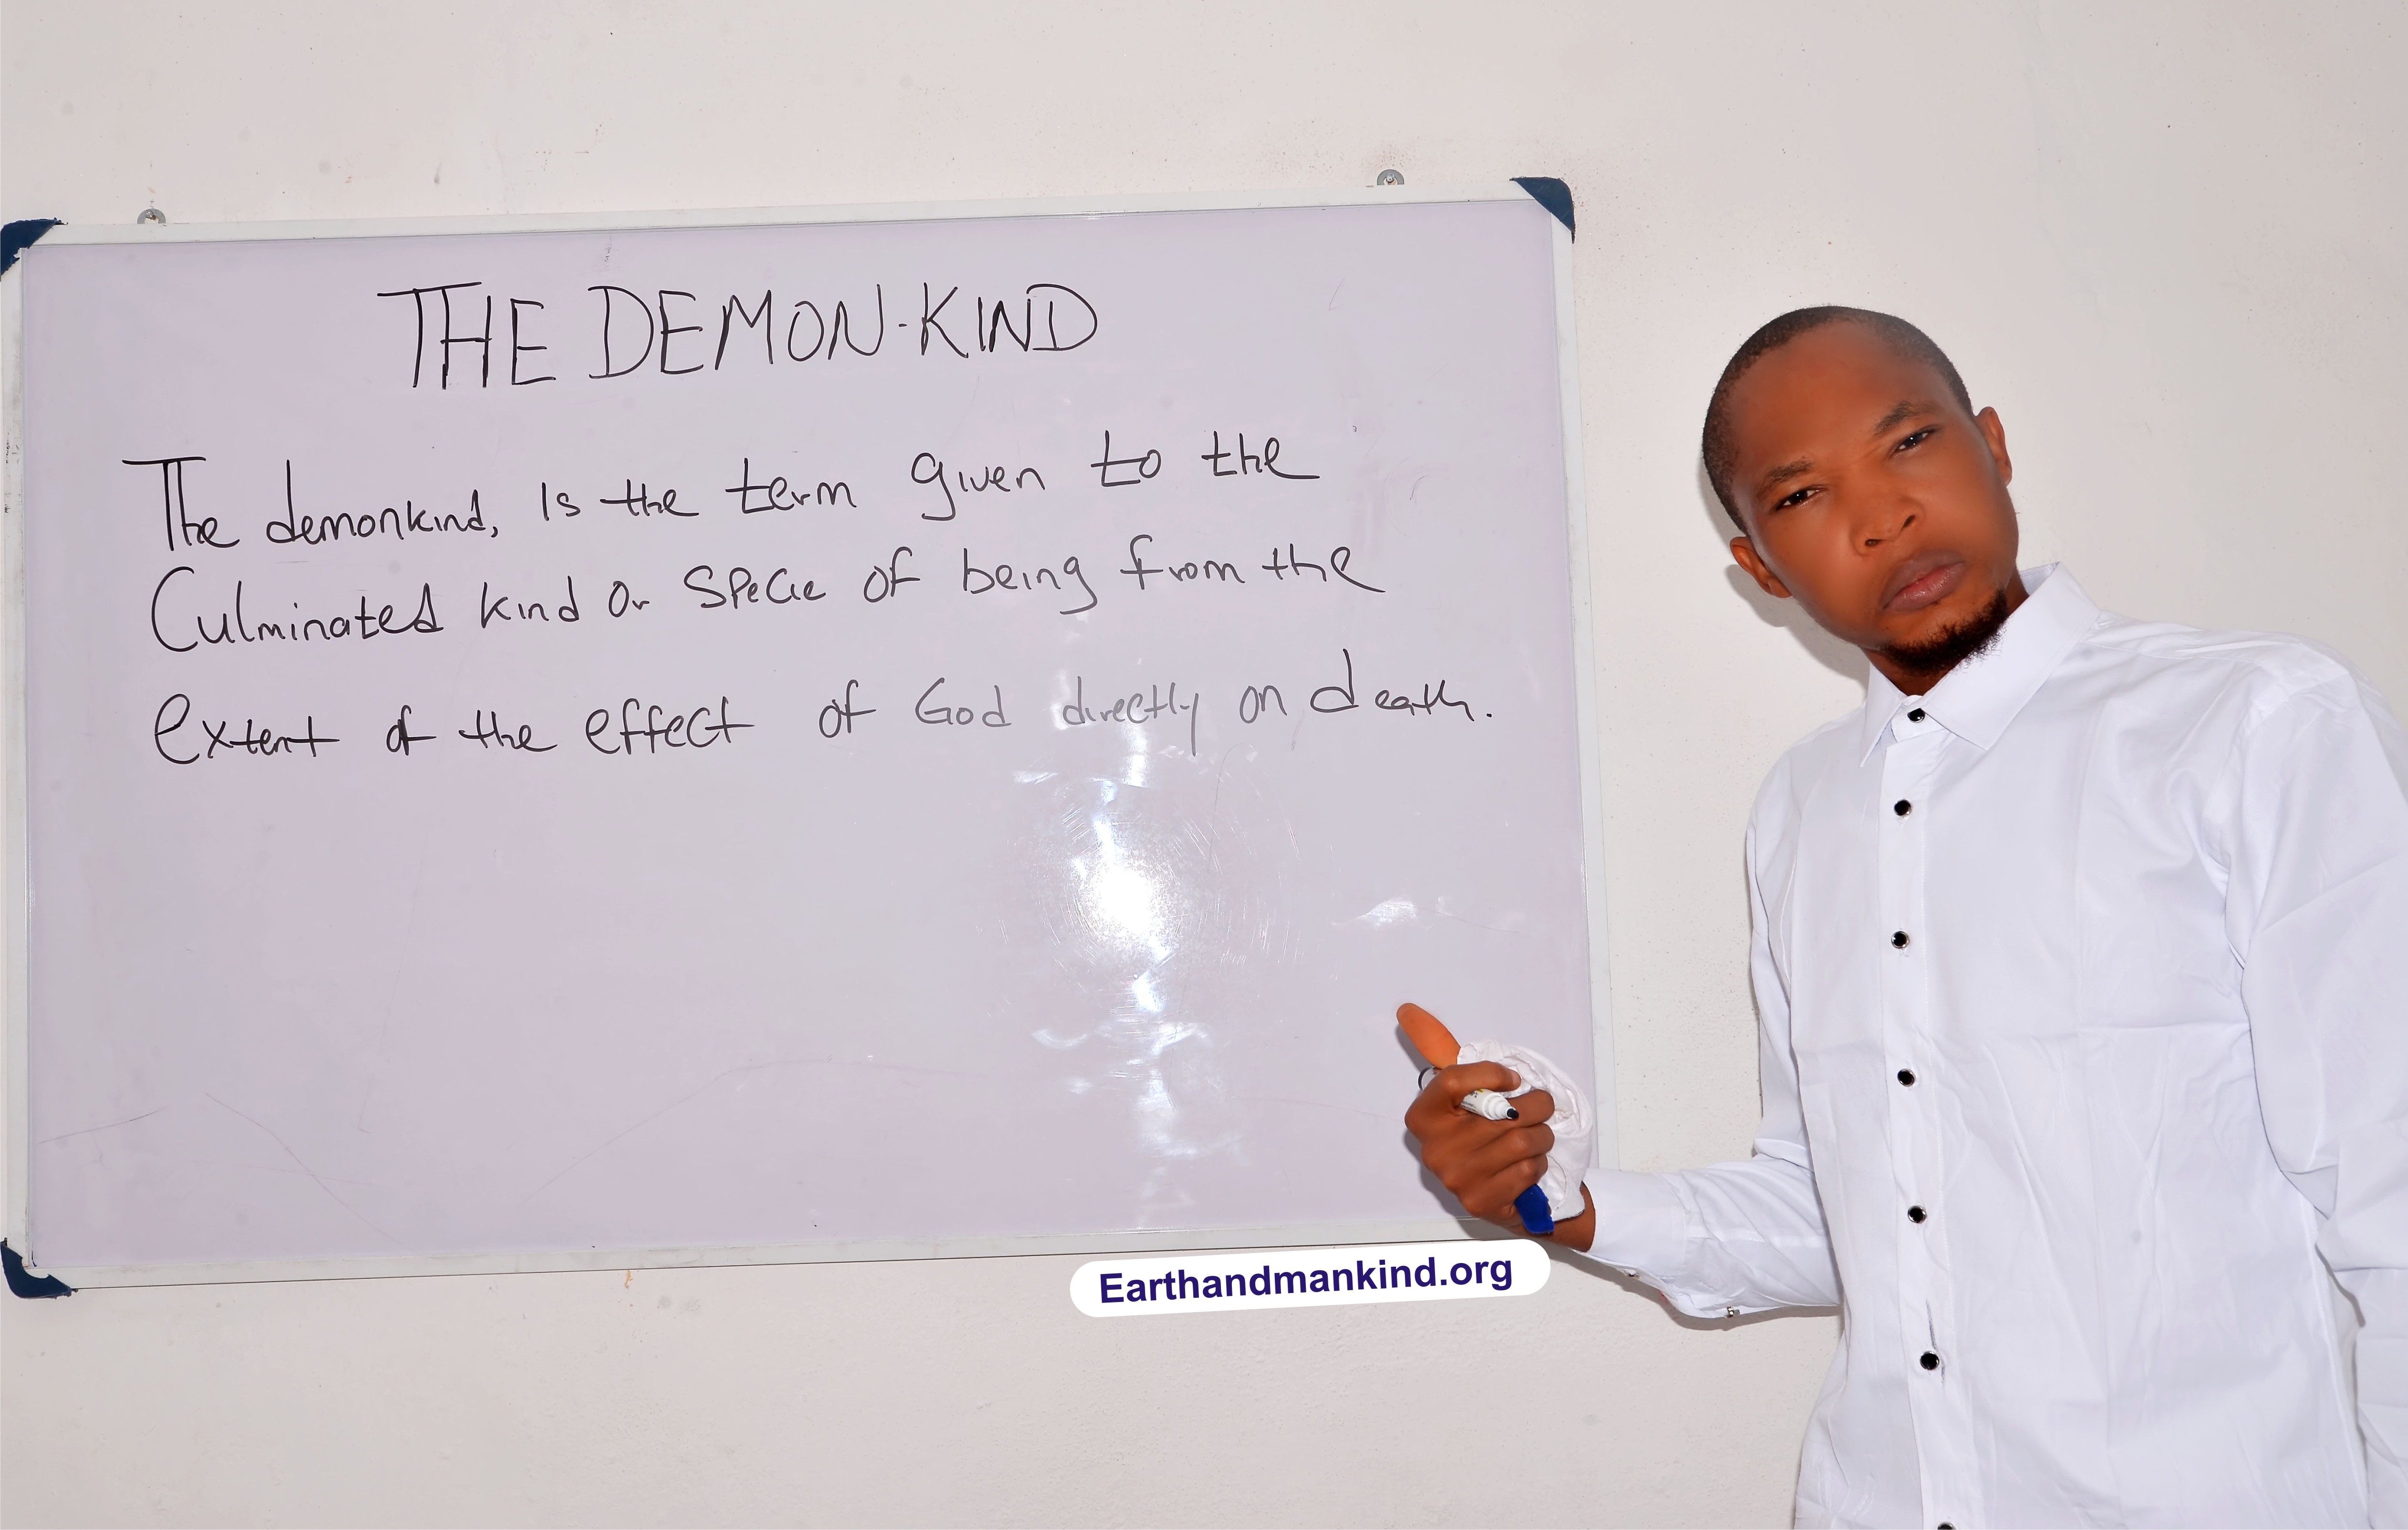 THE DEMON-KIND
The demonkind, is the term given to the
Culminated kind or specie of being from the
extent of the effect of God directly on death.
Earthandmankind.org